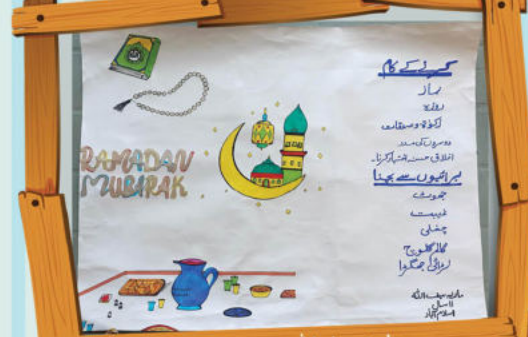 RAMADAN
MUBARAK
کرنے کے کام
نماز
روزہ
زکوٰۃ و صدقات
دوسروں کی مدد
اخلاق حسنہ اختیار کرنا۔
برائیوں سے بچنا
جھوٹ
غیبت
چغلی
گالم گلوچ
لڑائی جھگڑا
۱۱ سال
اسلام آباد